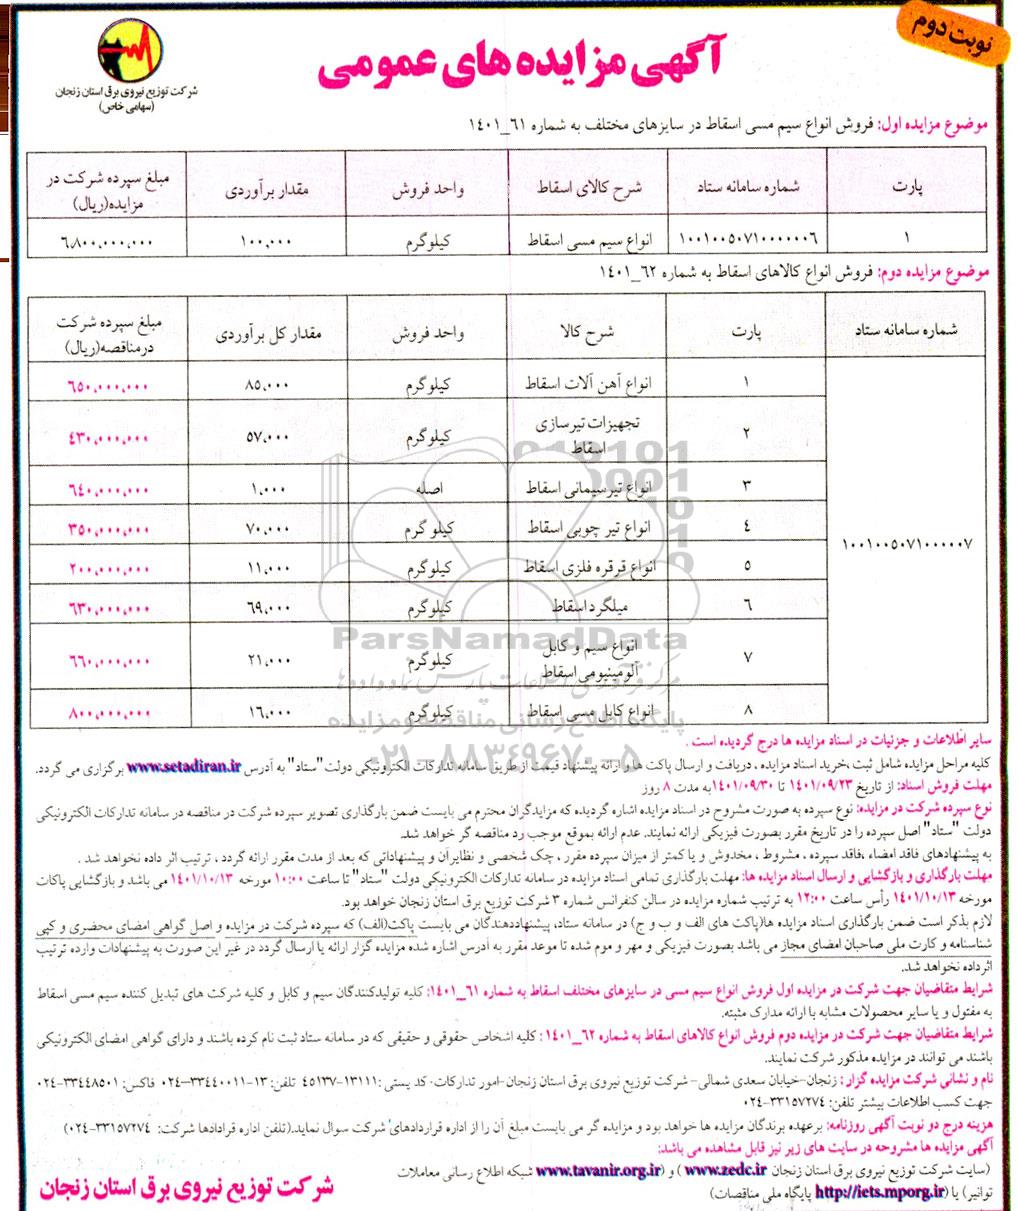 نوبت دوم
آگهی مزایده های عمومی
شرکت توزیع نیروی برق استان زنجان
(سهامی خاص)
موضوع مزایده اول: فروش انواع سیم مسی اسقاط در سایزهای مختلف به شماره ۶۱_۱۴۰۱
پارت | شماره سامانه ستاد | شرح کالای اسقاط | واحد فروش | مقدار برآوردی | مبلغ سپرده شرکت در مزایده(ریال)
۱ | ۱۰۰۱۰۰۵۰۷۱۰۰۰۰۰۰۶ | انواع سیم مسی اسقاط | کیلوگرم | ۱۰۰,۰۰۰ | ۶,۸۰۰,۰۰۰,۰۰۰
موضوع مزایده دوم: فروش انواع کالاهای اسقاط به شماره ۶۲_۱۴۰۱
شماره سامانه ستاد | پارت | شرح کالا | واحد فروش | مقدار کل برآوردی | مبلغ سپرده شرکت درمناقصه(ریال)
۱۰۰۱۰۰۵۰۷۱۰۰۰۰۰۷
۱ | انواع آهن آلات اسقاط | کیلوگرم | ۸۵,۰۰۰ | ۶۵۰,۰۰۰,۰۰۰
۲ | تجهیزات تیرسازی اسقاط | کیلوگرم | ۵۷,۰۰۰ | ۴۳۰,۰۰۰,۰۰۰
۳ | انواع تیرسیمانی اسقاط | اصله | ۱,۰۰۰ | ۶۴۰,۰۰۰,۰۰۰
۴ | انواع تیر چوبی اسقاط | کیلو گرم | ۷۰,۰۰۰ | ۳۵۰,۰۰۰,۰۰۰
۵ | انواع قرقره فلزی اسقاط | کیلوگرم | ۱۱,۰۰۰ | ۲۰۰,۰۰۰,۰۰۰
۶ | میلگرد اسقاط | کیلوگرم | ۶۹,۰۰۰ | ۶۳۰,۰۰۰,۰۰۰
۷ | انواع سیم و کابل آلومینیومی اسقاط | کیلوگرم | ۲۱,۰۰۰ | ۶۶۰,۰۰۰,۰۰۰
۸ | انواع کابل مسی اسقاط | کیلوگرم | ۱۶,۰۰۰ | ۸۰۰,۰۰۰,۰۰۰
ParsNamadData
پایگاه اطلاع رسانی مناقصه و مزایده
۰۲۱-۸۸۳۴۹۶۷۰-۵
سایر اطلاعات و جزئیات در اسناد مزایده ها درج گردیده است .
کلیه مراحل مزایده شامل ثبت ،خرید اسناد مزایده ، دریافت و ارسال پاکت ها و ارائه پیشنهاد قیمت از طریق سامانه تدارکات الکترونیکی دولت "ستاد" به آدرس www.setadiran.ir برگزاری می گردد.
مهلت فروش اسناد: از تاریخ ۱۴۰۱/۰۹/۲۳ تا ۱۴۰۱/۰۹/۳۰به مدت ۸ روز
نوع سپرده شرکت در مزایده: نوع سپرده به صورت مشروح در اسناد مزایده اشاره گردیده که مزایدگران محترم می بایست ضمن بارگذاری تصویر سپرده شرکت در مناقصه در سامانه تدارکات الکترونیکی
دولت "ستاد" اصل سپرده را در تاریخ مقرر بصورت فیزیکی ارائه نمایند. عدم ارائه بموقع موجب رد مناقصه گر خواهد شد.
به پیشنهادهای فاقد امضاء ،فاقد سپرده ، مشروط ، مخدوش و یا کمتر از میزان سپرده مقرر ، چک شخصی و نظایرآن و پیشنهاداتی که بعد از مدت مقرر ارائه گردد ، ترتیب اثر داده نخواهد شد .
مهلت بارگذاری و بازگشایی و ارسال اسناد مزایده ها: مهلت بارگذاری تمامی اسناد مزایده در سامانه تدارکات الکترونیکی دولت "ستاد" تا ساعت ۱۰:۰۰ مورخه ۱۴۰۱/۱۰/۱۳ می باشد و بازگشایی پاکات
مورخه ۱۴۰۱/۱۰/۱۳ رأس ساعت ۱۲:۰۰ به ترتیب شماره مزایده در سالن کنفرانس شماره ۳ شرکت توزیع برق استان زنجان خواهد بود.
لازم بذکر است ضمن بارگذاری اسناد مزایده ها(پاکت های الف و ب و ج) در سامانه ستاد، پیشنهاددهندگان می بایست پاکت(الف) که سپرده شرکت در مزایده و اصل گواهی امضای محضری و کپی
شناسنامه و کارت ملی صاحبان امضای مجاز می باشد بصورت فیزیکی و مهر و موم شده تا موعد مقرر به آدرس اشاره شده مزایده گزار ارائه یا ارسال گردد در غیر این صورت به پیشنهادات وارده ترتیب
اثرداده نخواهد شد.
شرایط متقاضیان جهت شرکت در مزایده اول فروش انواع سیم مسی در سایزهای مختلف اسقاط به شماره ۶۱_۱۴۰۱: کلیه تولیدکنندگان سیم و کابل و کلیه شرکت های تبدیل کننده سیم مسی اسقاط
به مفتول و یا سایر محصولات مشابه با ارائه مدارک مثبته.
شرایط متقاضیان جهت شرکت در مزایده دوم فروش انواع کالاهای اسقاط به شماره ۶۲_۱۴۰۱ : کلیه اشخاص حقوقی و حقیقی که در سامانه ستاد ثبت نام کرده باشند و دارای گواهی امضای الکترونیکی
باشند می توانند در مزایده مذکور شرکت نمایند.
نام و نشانی شرکت مزایده گزار : زنجان-خیابان سعدی شمالی- شرکت توزیع نیروی برق استان زنجان-امور تدارکات- کد پستی :۱۳۱۱۱-۴۵۱۳۷ تلفن: ۱۳-۳۳۴۴۰۰۱۱-۰۲۴ فاکس: ۳۳۴۴۸۵۰۱-۰۲۴
جهت کسب اطلاعات بیشتر تلفن: ۳۳۱۵۷۲۷۴-۰۲۴
هزینه درج دو نوبت آگهی روزنامه: برعهده برندگان مزایده ها خواهد بود و مزایده گر می بایست مبلغ آن را از اداره قراردادهای شرکت سوال نماید.(تلفن اداره قرادادها شرکت: ۳۳۱۵۷۲۷۴-۰۲۴)
آگهی مزایده ها مشروحه در سایت های زیر نیز قابل مشاهده می باشد:
(سایت شرکت توزیع نیروی برق استان زنجان www.zedc.ir ) و (www.tavanir.org.ir شبکه اطلاع رسانی معاملات
توانیر) یا (http://iets.mporg.ir پایگاه ملی مناقصات)
شرکت توزیع نیروی برق استان زنجان